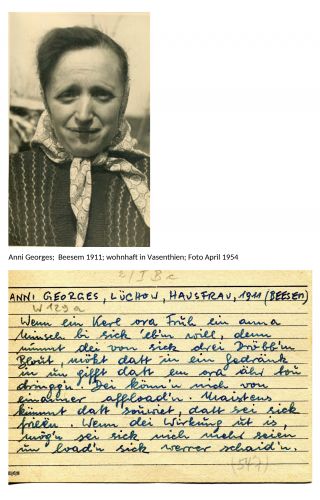 Anni Georges; Beesem 1911; wohnhaft in Vasenthien; Foto April 1954
2/I B c
ANNI GEORGES, LÜCHOW, HAUSFRAU, 1911 (BEESEM)
W 129 a
Wenn ein Kerl ora Früh ein anna
Minsch bi sick 'ebm will, denn
nimmt dei von sick drei Dröbb'n
Blout, mökt datt in ein Gedränk
in un gifft datt em ora ähr tou
dringg'n. Dei könn'n nich von
einanner affload'n. Maistens
kümmt datt souwiet, datt sei sick
frieen. Wenn dei Wirkung ut is,
mög'n sei sick nich mehr seien
un load'n sick werrer schaid'n.
(547)